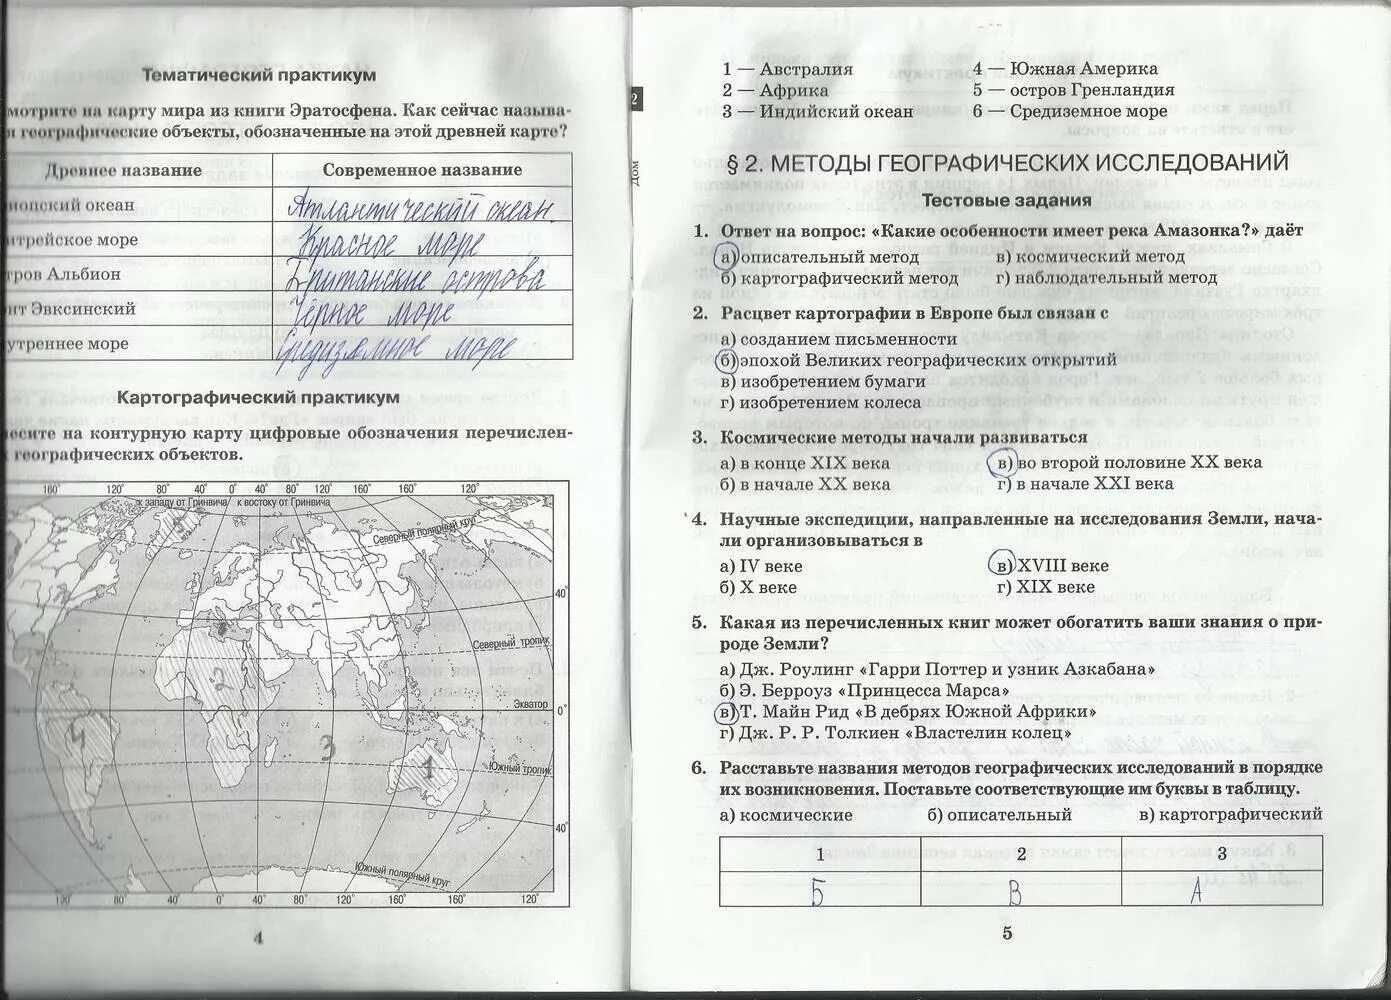 Тематический практикум
мотрите на карту мира из книги Эратосфена. Как сейчас называ-
географические объекты, обозначенные на этой древней карте?
Древнее название Современное название
океан Атлантический океан
море Красное море
Альбион Британские острова
Эвксинский Чёрное море
утреннее море Средиземное море
Картографический практикум
на контурную карту цифровые обозначения перечислен-
географических объектов.
160° 120° 80° 40° 0° 40° 80° 120° 160° 160° 120°
к западу от Гринвича к востоку от Гринвича
5
Северный полярный круг
40°
Северный тропик
2
Экватор 0°
4
3
1
Южный тропик
40°
Южный полярный круг
120° 80° 40° 0° 40° 80° 120° 160° 160° 120°
4
2
Дом
1 — Австралия 4 — Южная Америка
2 — Африка 5 — остров Гренландия
3 — Индийский океан 6 — Средиземное море
§ 2. МЕТОДЫ ГЕОГРАФИЧЕСКИХ ИССЛЕДОВАНИЙ
Тестовые задания
1. Ответ на вопрос: «Какие особенности имеет река Амазонка?» даёт
а) описательный метод в) космический метод
б) картографический метод г) наблюдательный метод
2. Расцвет картографии в Европе был связан с
а) созданием письменности
б) эпохой Великих географических открытий
в) изобретением бумаги
г) изобретением колеса
3. Космические методы начали развиваться
а) в конце XIX века в) во второй половине XX века
б) в начале XX века г) в начале XXI века
4. Научные экспедиции, направленные на исследования Земли, нача-
ли организовываться в
а) IV веке в) XVIII веке
б) X веке г) XIX веке
5. Какая из перечисленных книг может обогатить ваши знания о при-
роде Земли?
а) Дж. Роулинг «Гарри Поттер и узник Азкабана»
б) Э. Берроуз «Принцесса Марса»
в) Т. Майн Рид «В дебрях Южной Африки»
г) Дж. Р. Р. Толкиен «Властелин колец»
6. Расставьте названия методов географических исследований в порядке
их возникновения. Поставьте соответствующие им буквы в таблицу.
а) космические б) описательный в) картографический
1 2 3
Б В А
5